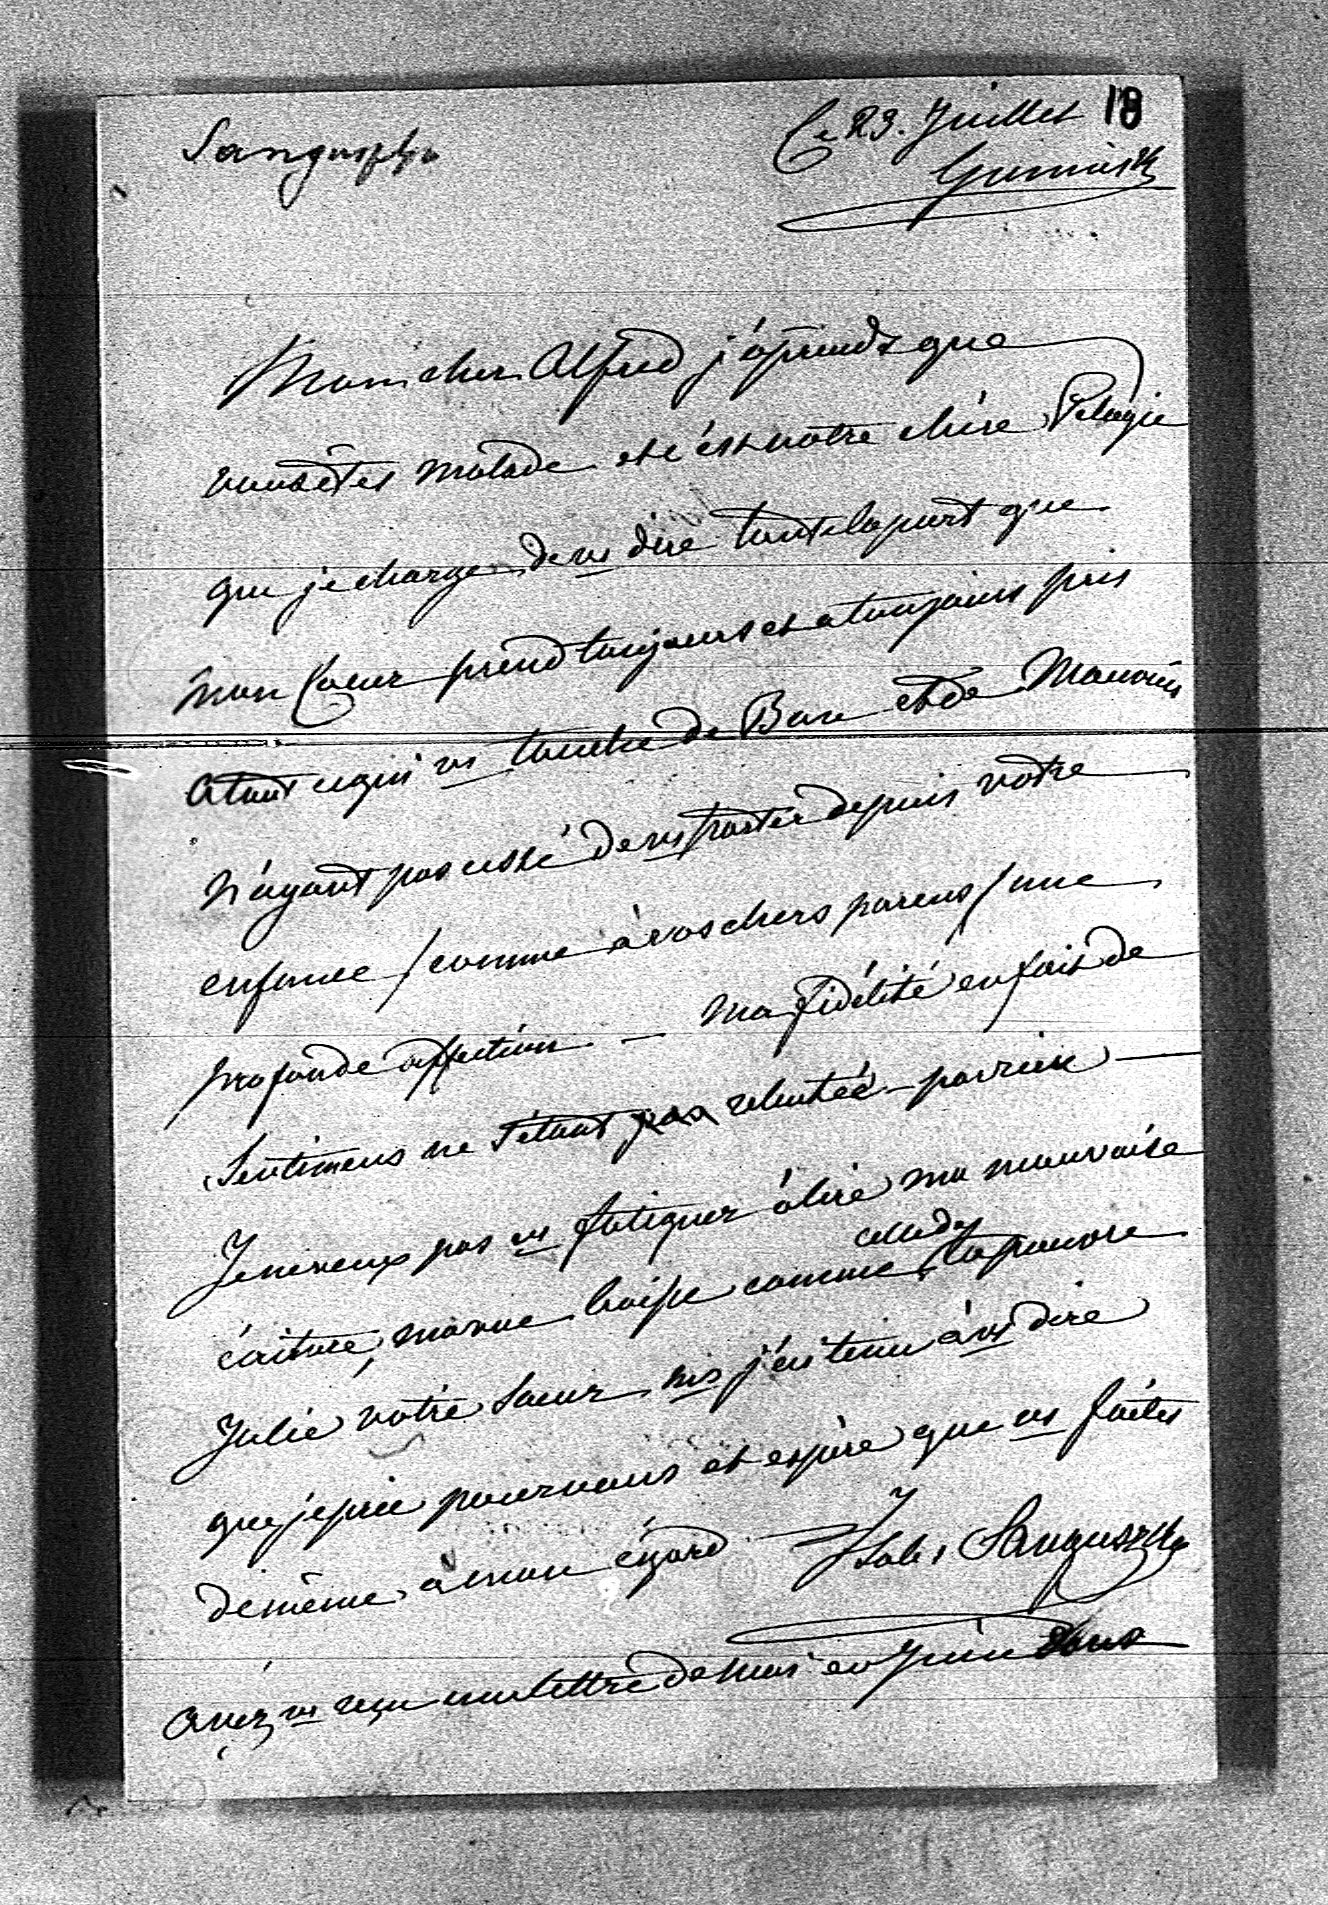 Sanguszko
Ce 23. Juillet 18
Gumnisk
Mon cher Alfred j'áprends que
vous êtes malade et c'est votre chère Pelagie
que je charge de vs dire toute la part que
mon Coeur prend toujours et a toujours pris
a tout ce qui vs touche de Bon et de Mauvais
n'ayant pas cessé de vs porter depuis votre
enfance / comme à vos chers parens / une
profonde affection — ma fidélité en fait de
Sentimens ne s'étant pas rebutée par rien —
Je ne veux pas vs fatiguer à lire ma mauvaise
celle de
écriture, ma vue baisse comme la pauvre
Julie votre Soeur, mis j'ai tenu à vs dire
que je prie pour vous et espère que vs faites
de même à mon égard — Isab, Sanguszko
Avez vs reçu une lettre de moi en Juin